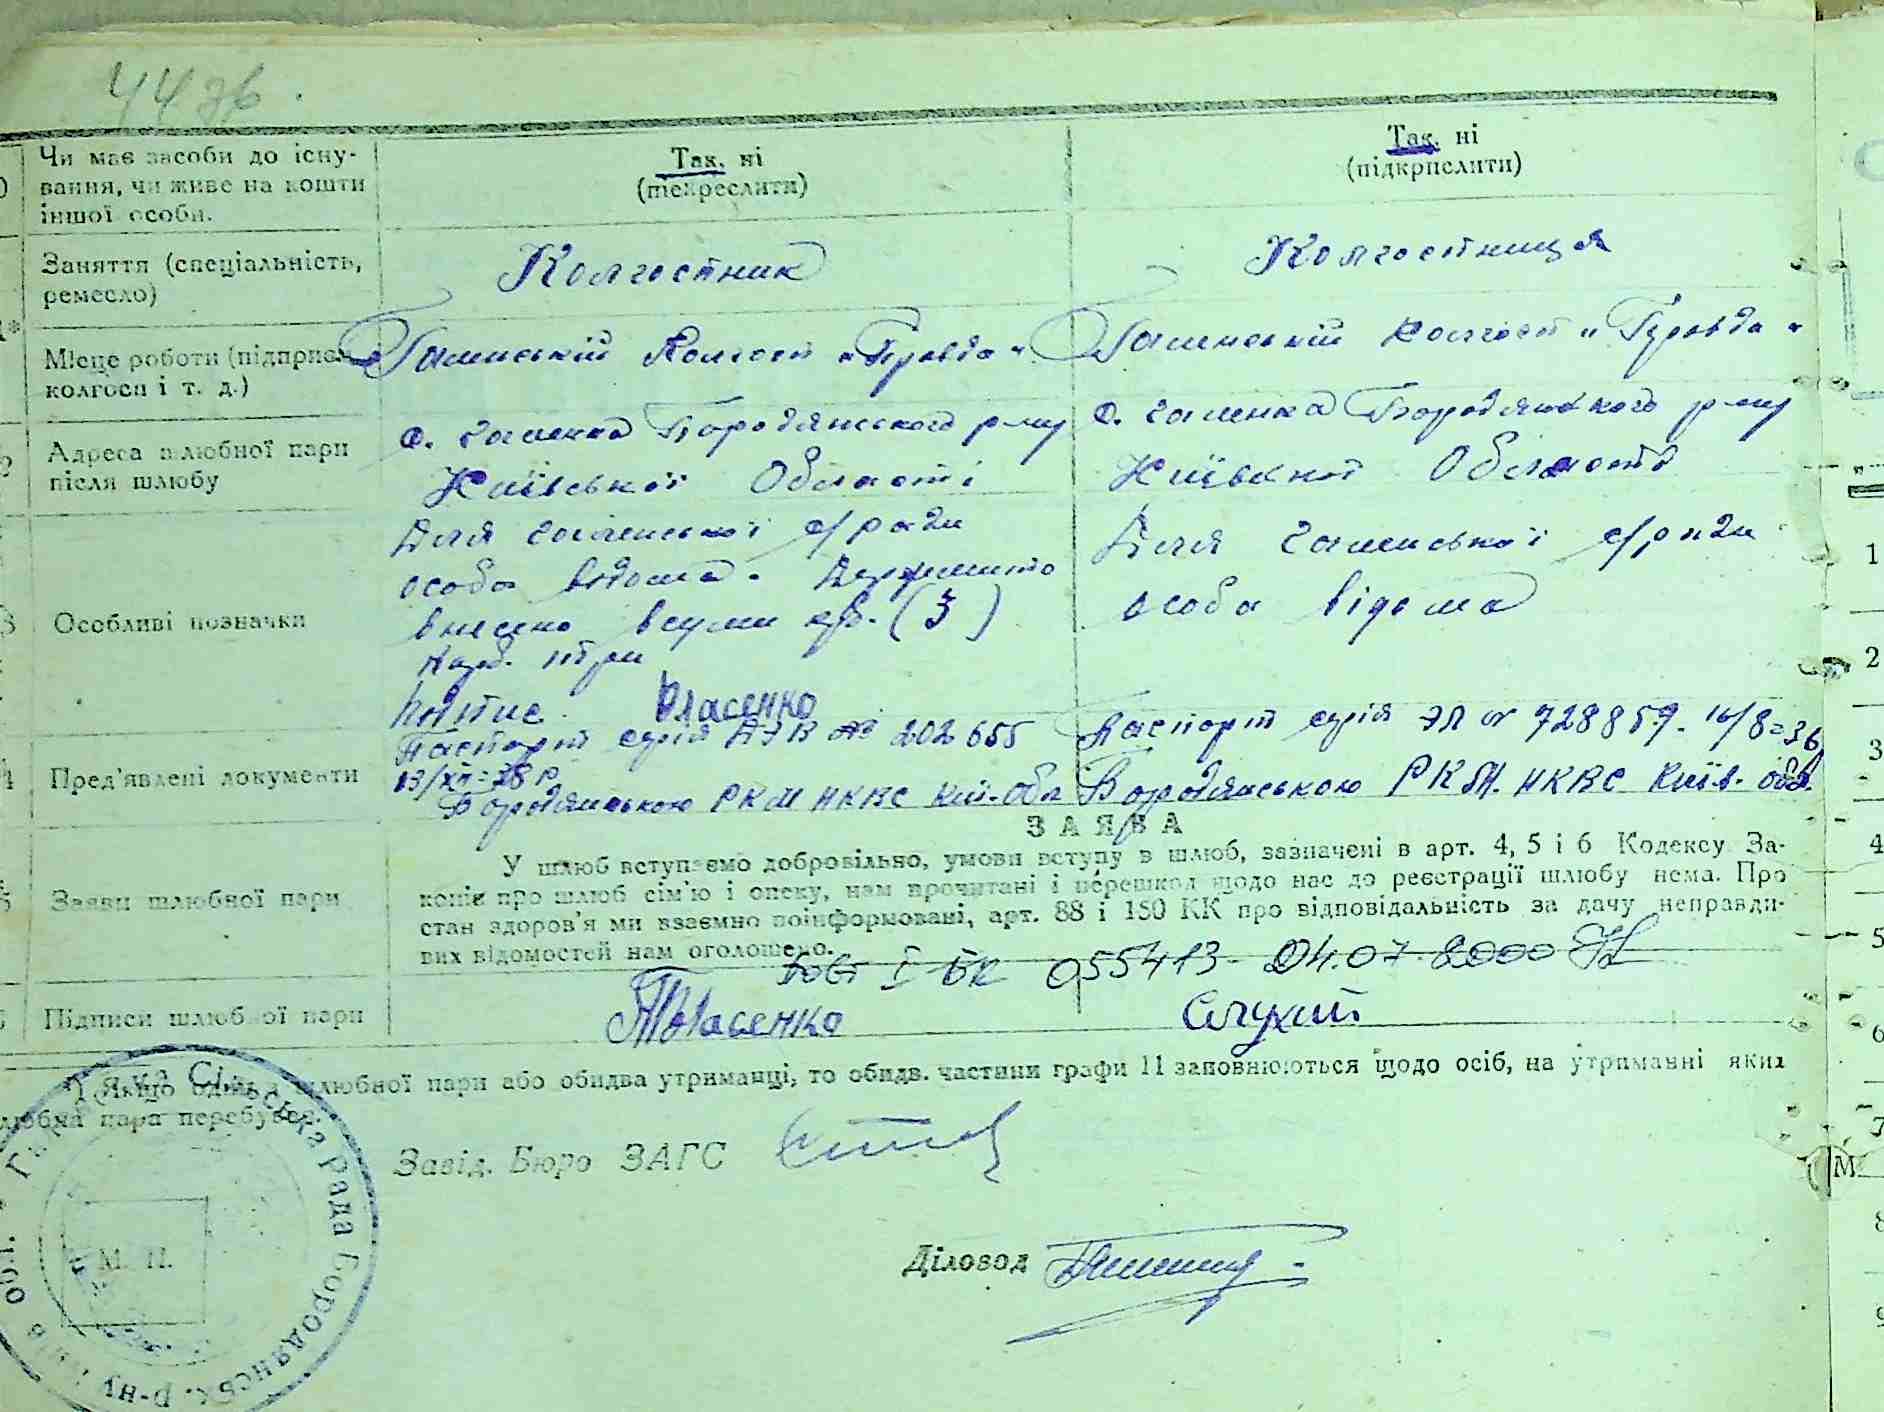 44 зв.
Чи має засоби до існу-
вання, чи живе на кошти
іншої особи.
Так, ні
(підкреслити)
Так, ні
(підкрислити)
Заняття (спеціальність,
ремесло)
Колгоспник
Колгоспниця
Місце роботи (підприєм
колгосп і т. д.)
Галенській Колгосп "Правда"
Галенській колгосп "Правда"
Адреса шлюбної пари
після шлюбу
с. Галенка Бородянського р-ну
Київської Області
с. Галенка Бородянського р-ну
Київської Області
Особливі позначки
Для Галенської с/ради
особа відома.
внесено в сумі крб. (3)
Карб. три
Підпис Власенко
Для Галенської с/ради
особа відома
Пред'явлені документи
Паспорт серія АЭВ № 202655
13/XII=38 р.
Бородянською РКМ НКВС Киї. Обл
Паспорт серія ЭЛ № 728859. 16/8=36
Бородянською РКМ. НКВС Київ. обл.
ЗАЯВА
Заяви шлюбної пари
У шлюб вступаємо добровільно, умови вступу в шлюб, зазначені в арт. 4, 5 і 6 Кодексу За-
конів про шлюб сім'ю і опеку, нам прочитані і перешкод щодо нас до реєстрації шлюбу нема. Про
стан здоров'я ми взаємно поінформовані, арт. 88 і 150 КК про відповідальність за дачу неправди-
вих відомостей нам оголошено.
I БК 055413 04.07.2000
Підписи шлюбної пари
Власенко
Слухай
) Якщо один з шлюбної пари або обидва утриманці, то обидв. частини графи 11 заповнюються щодо осіб, на утриманні яких
шлюбна пара перебуває.
Завід. Бюро ЗАГС
Діловод
М. П.
Сільська Рада Бородянськ. р-ну
обл.
1
2
3
4
5
6
7
М.
8
9